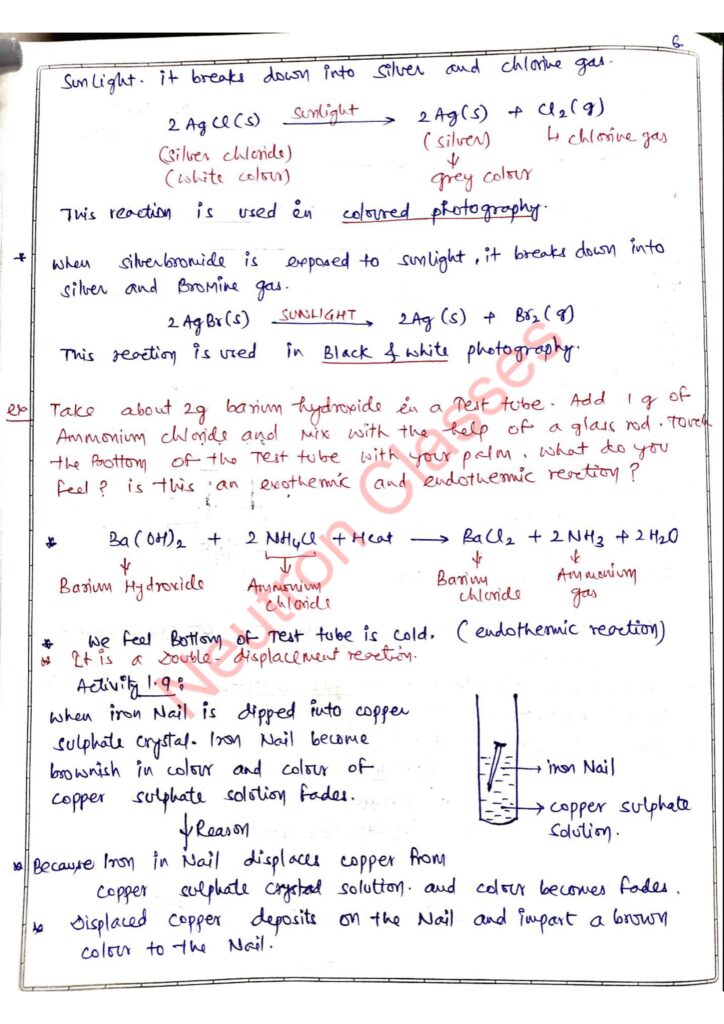 6
Sunlight. it breaks down into silver and chlorine gas.
2AgCl(s) —Sunlight→ 2Ag(s) + Cl₂(g)
(silver chloride) (silver) ↳ chlorine gas
(white colour) ↓ grey colour
This reaction is used in coloured photography.
* When silverbromide is exposed to sunlight, it breaks down into
silver and Bromine gas.
2AgBr(s) —SUNLIGHT→ 2Ag(s) + Br₂(g)
This reaction is used in Black & white photography.
ex Take about 2g barium hydroxide in a Test tube. Add 1g of
Ammonium chloride and Mix with the help of a glass rod. Touch
the Bottom of the Test tube with your palm. What do you
feel? is this an exothemic and endothemic reaction?
* Ba(OH)₂ + 2NH₄Cl + Heat → BaCl₂ + 2NH₃ + 2H₂O
↓ ↓ ↓ ↓
Barium Hydroxide Ammonium Barium Ammonium
chloride chloride gas
* We feel Bottom of Test tube is cold. (endothermic reaction)
* It is a Double-displacement reaction.
Activity 1.9:
When iron Nail is dipped into copper
sulphate crystal. Iron Nail become
brownish in colour and colour of
copper sulphate solution fades.
→ iron Nail
→ copper sulphate
solution.
↓ Reason
* Because Iron in Nail displaces copper from
copper sulphate crystal solution. and colour becomes fades.
* Displaced copper deposits on the Nail and impart a brown
colour to the Nail.
Neutron Classes